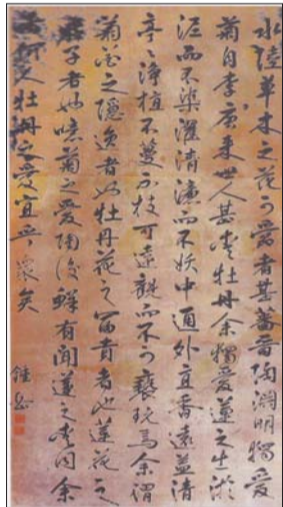 水陸草木之花可愛者甚蕃晉陶淵明獨愛
菊自李唐来世人甚愛牡丹余獨愛蓮之出淤
泥而不染濯清漣而不妖中通外直香遠益清
亭〻淨植不蔓不枝可遠觀而不可褻玩焉余謂
菊花之隱逸者也牡丹花之富貴者也蓮花之
君子者也噫菊之愛陶後鮮有聞蓮之愛同余
者何人牡丹之愛宜乎衆矣